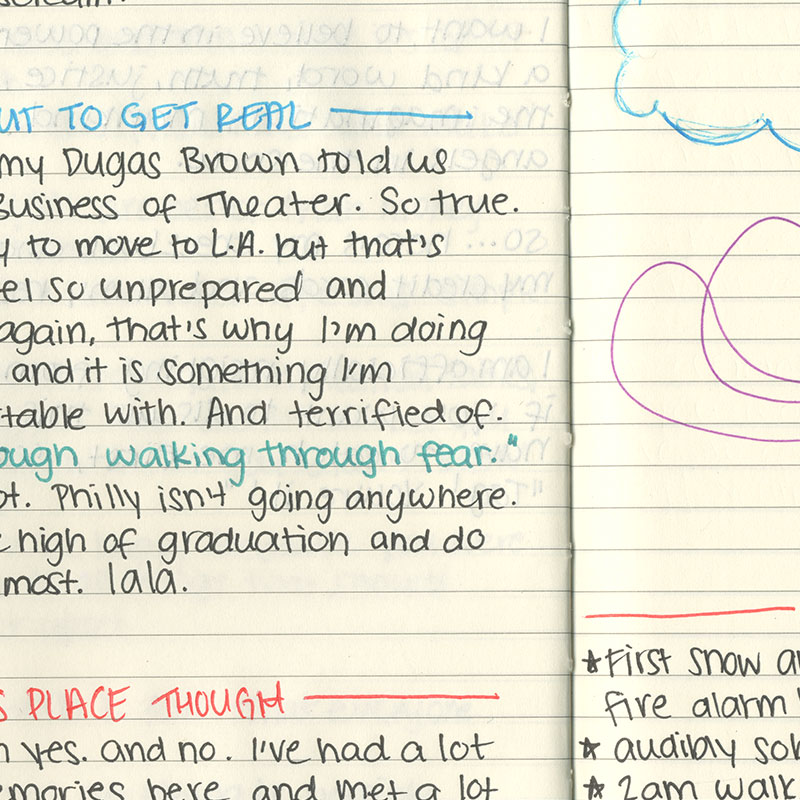 UT TO GET REAL
my Dugas Brown told us
Business of Theater. So true.
y to move to L.A. but that's
el so unprepared and
again, that's why I'm doing
and it is something I'm
table with. And terrified of.
ough walking through fear."
ot. Philly isn't going anywhere.
high of graduation and do
most. lala.
S PLACE THOUGH
n yes. and no. I've had a lot
mories here and met a lot
★ First snow an
fire alarm
★ audibly sob
★ 2am walk